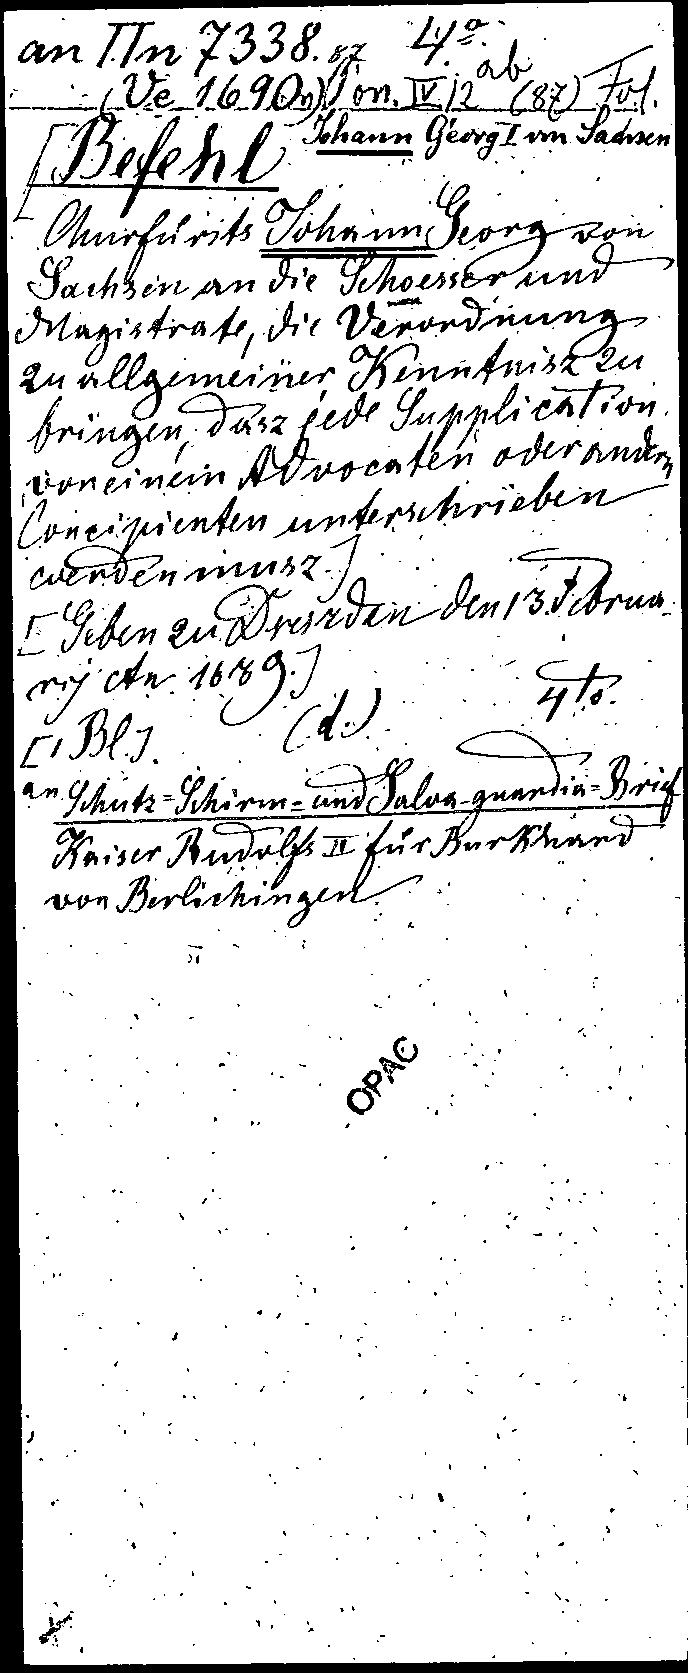 an IIn 7338. 87 4º.
(Ve 1690n) Pon. IV, 12 ab (87) Fol.
Johann Georg I von Sachsen
[Befehl
Churfürsts Johann Georg von
Sachsen an die Schoesser und
Magistrate, die Verordnung
zu allgemeiner Kenntnisz zu
bringen, dasz jede Supplication
von einem Advocaten oder andern
Concipienten unterschrieben
werden musz.]
[Geben zu Dreszden den 13. Februa-
rij An. 1639.]
[1 Bl.]. (d.) 4to.
an Schutz-Schirm- und Salva-guardia-Brief
Kaiser Rudolfs II für Burkhard
von Berlichingen
OPAC